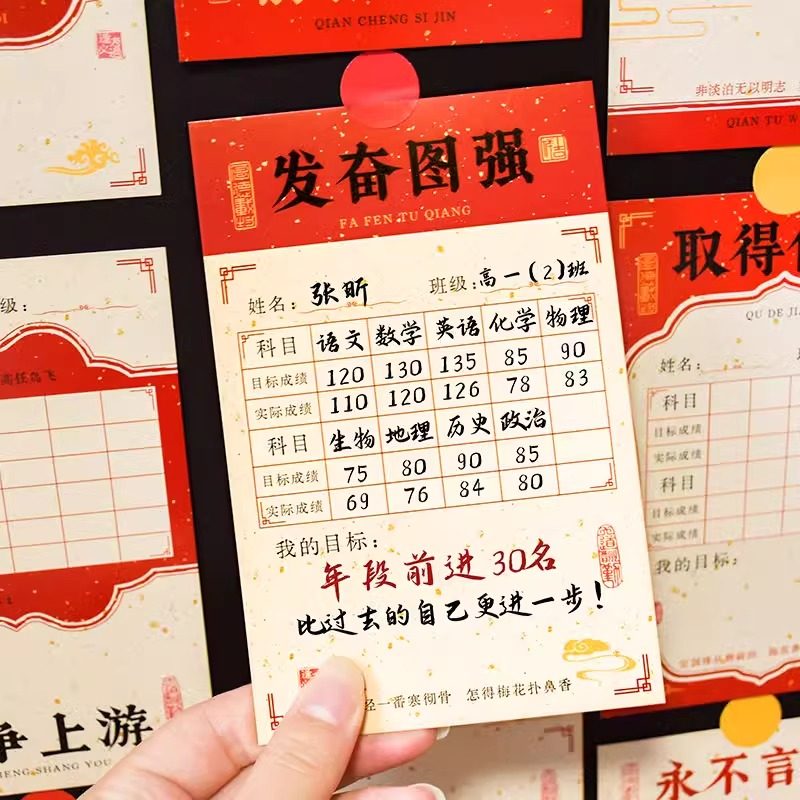 QIAN CHENG SI JIN
非淡泊无以明志
QIAN TU W
发奋图强
FA FEN TU QIANG
姓名：张昕 班级：高一(2)班
科目 语文 数学 英语 化学 物理
目标成绩 120 130 135 85 90
实际成绩 110 120 126 78 83
科目 生物 地理 历史 政治
目标成绩 75 80 90 85
实际成绩 69 76 84 80
我的目标：
年段前进30名
比过去的自己更进一步！
经一番寒彻骨 怎得梅花扑鼻香
级：
高任鸟飞
争上游
ENG SHANG YOU
取得
QU DE JI
姓名：
科目
目标成绩
实际成绩
科目
目标成绩
实际成绩
我的目标：
永不言